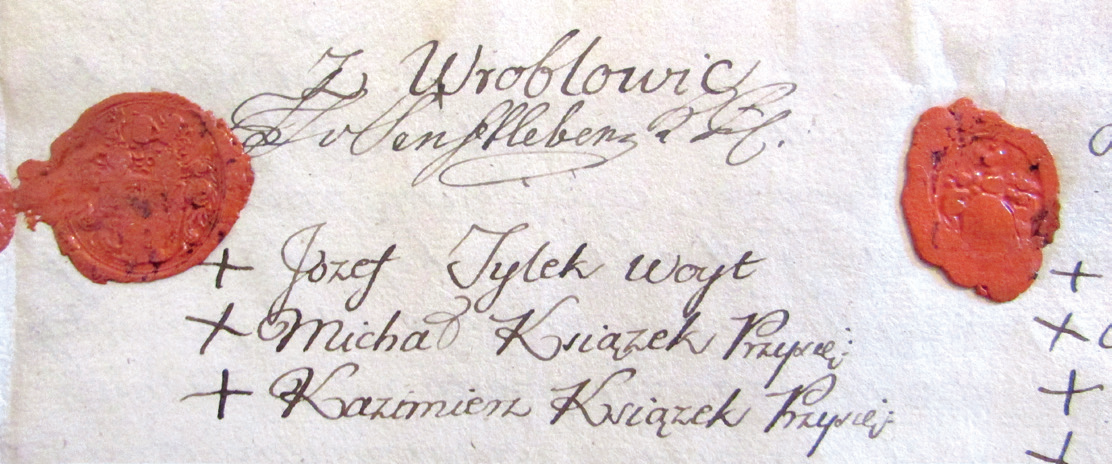 Z Wroblowic
+ Jozef Tylek woyt
+ Michał Książek Przysięż
+ Kazimierz Książek Przysięż